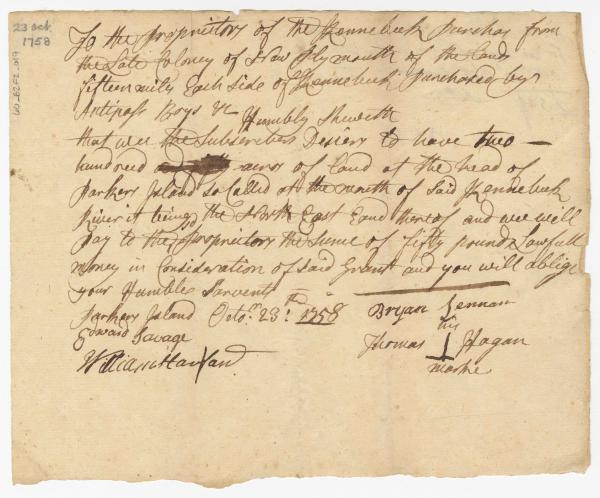 23 oct.
1758
To the Proprietors of the Kennebeck Purchas from
the Late Coloney of New Plymouth of the Land
fifteen mily Each side of Kennebeck Purchased by
Antipass Boys &c Humbly Sheweth
that wee the Subscribers Desiers to have two
hundred acors of Land at the head of
Parkers Island so Called at the mouth of said Kennebeck
River it being the North East End thereof and we will
Pay to the Proprietors the sume of fifty pounds Lawfull
money in Consideration of said Grant and you will oblige
your Humble Servents
Parkers Island Octor. 23th. 1758
Bryan Lennan
Edward Savage
his
Thomas Hagan
marke
William